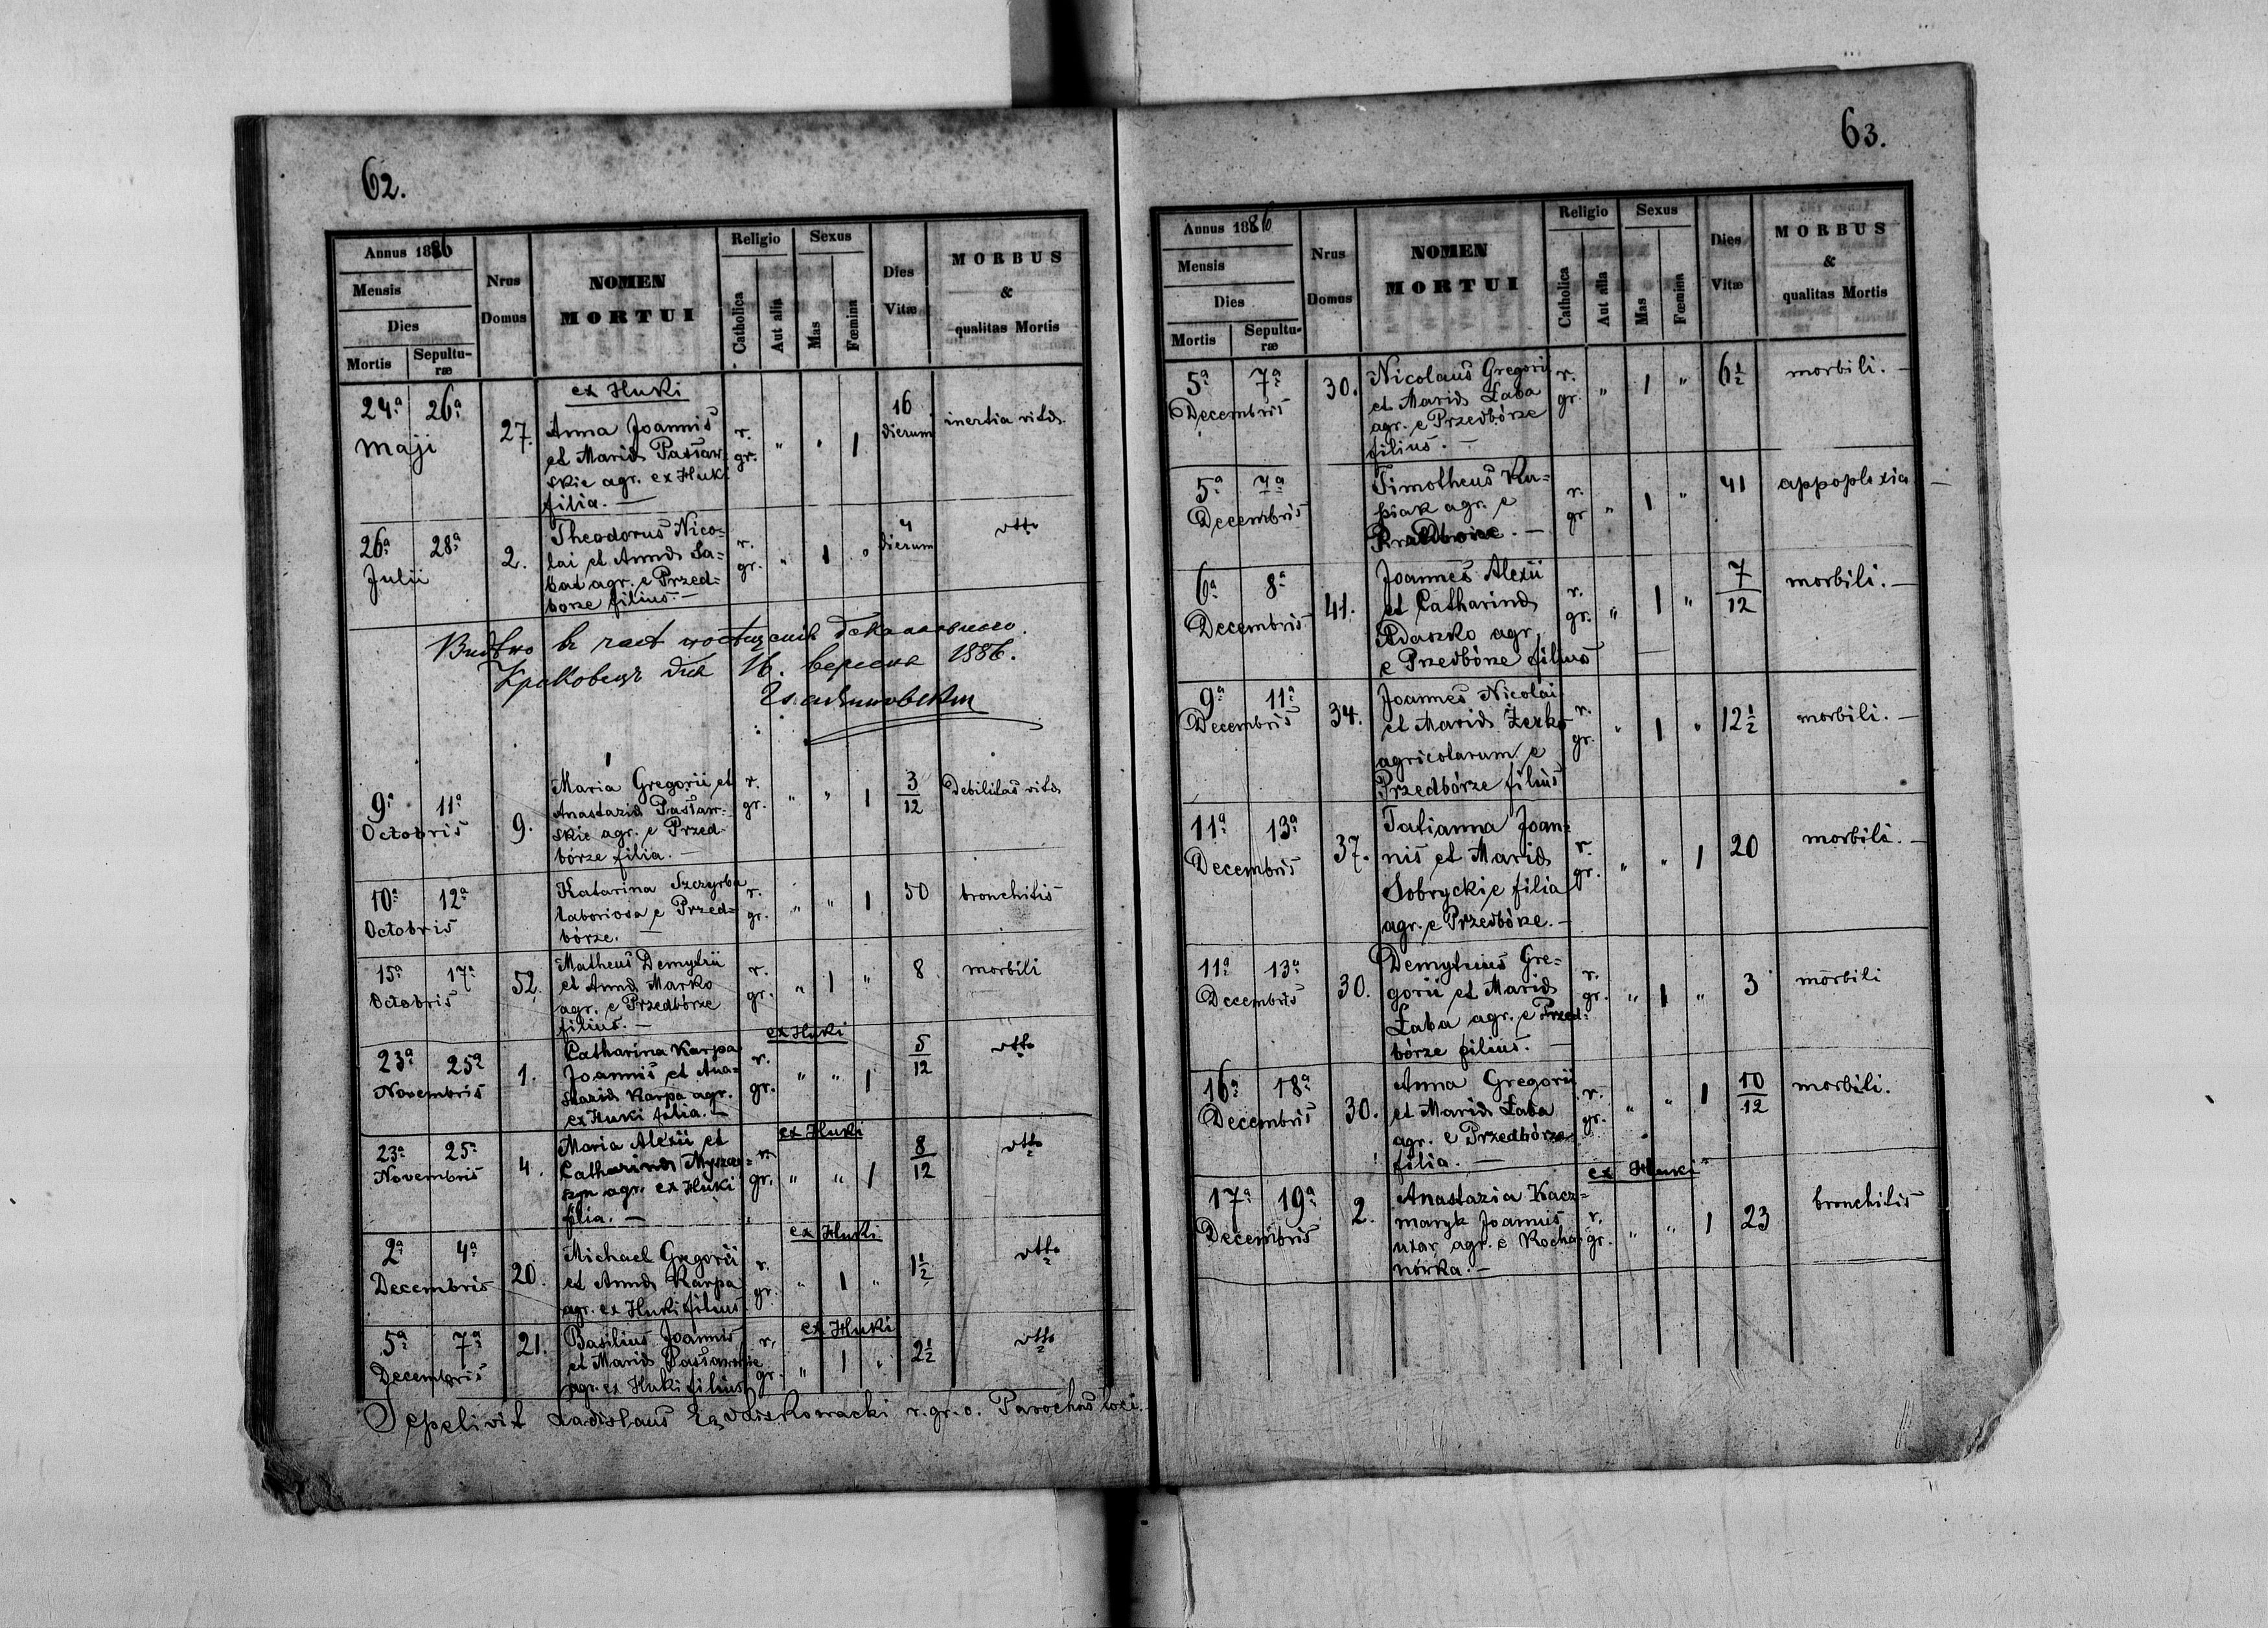 62.
Annus 1886
Mensis
Dies
Mortis
Sepulturæ
Nrus Domus
NOMEN
MORTUI
Religio
Catholica
Aut alia
Sexus
Mas
Fœmina
Dies Vitæ
MORBUS
&
qualitas Mortis
ex Huki
24ª 26ª Maji 27. r. gr. " " 1 16 dierum inertia vitæ
Anna Joannis
et Mariæ Pasław-
skie agr. ex Huki
filia. —
26ª 28ª Julii 2. r. gr. " 1 " 4 dierum dtto
Theodorus Nico=
lai et Annæ Sa-
bat agr. e Przed=
borze filius. —
16. вересня 1886.
9ª 11ª Octobris 9. r. gr. " " 1 3/12 Debilitas vitæ
Maria Gregorii et
Anastaziæ Pasław-
skie agr. e Przed-
bórze filia. —
10ª 12ª Octobris r. gr. " " 1 50 bronchitis
Katarina Szczyrba
laboriosa e Przed=
bórze. —
15ª 17ª Octobris 52. r. gr. " 1 " 8 morbili
Matheus Demytrii
et Annæ Marko
agr. e Przedbórze
filius. —
ex Huki
23ª 25ª Novembris 1. r. gr. " " 1 5/12 dtto
Catharina Karpa
Joannis et Ana=
staziæ Karpa agr.
ex Huki filia. —
ex Huki
23ª 25ª Novembris 4. r. gr. " " 1 8/12 dtto
Maria Alexii et
Catharinæ
agr. ex Huki
filia. —
ex Huki
2ª 4ª Decembris 20. r. gr. " 1 " 1½ dtto
Michael Gregorii
et Annæ Karpa
agr. ex Huki filius
ex Huki
5ª 7ª Decembris 21. r. gr. " 1 " 2½ dtto
Basilius Joannis
et Mariæ Pasławskie
agr. ex Huki filius
Sepelivit Ladislaus r. gr. c. Parochus loci.
63.
Annus 1886
Mensis
Dies
Mortis
Sepulturæ
Nrus Domus
NOMEN
MORTUI
Religio
Catholica
Aut alia
Sexus
Mas
Fœmina
Dies Vitæ
MORBUS
&
qualitas Mortis
5ª 7ª Decembris 30. r. gr. " 1 " 6½ morbili. —
Nicolaus Gregorii
et Mariæ Łaba
agr. e Przedbórze
filius. —
5ª 7ª Decembris r. gr " 1 " 41 appoplexia —
Timotheus Ku=
piak agr. e
6ª 8ª Decembris 41. r. gr. " 1 " 7/12 morbili. —
Joannes Alexii
et Catharinæ
Adaszko agr.
e Przedbórze filius
9ª 11ª Decembris 34. r. gr. " 1 " 12½ morbili. —
Joannes Nicolai
et Mariæ Żerko
agricolarum e
Przedbórze filius
11ª 13ª Decembris 37. r. gr. " " 1 20 morbili. —
Tatianna Joan=
nis et Mariæ
Sobryckie filia
agr. e Przedbórze. —
11ª 13ª Decembris 30. r. gr. " 1 " 3 morbili
Demytrius Gre=
gorii et Mariæ
Łaba agr. e Przed=
bórze filius. —
16ª 18ª Decembris 30. r. gr. " " 1 10/12 morbili.
Anna Gregorii
et Mariæ Łaba
agr. e Przedbórze
filia. —
ex Huki
17ª 19ª Decembris 2. r. gr. " " 1 23 bronchitis
Anastazia Kacz=
maryk Joannis
uxor agr. e Kocha-
nówka. —